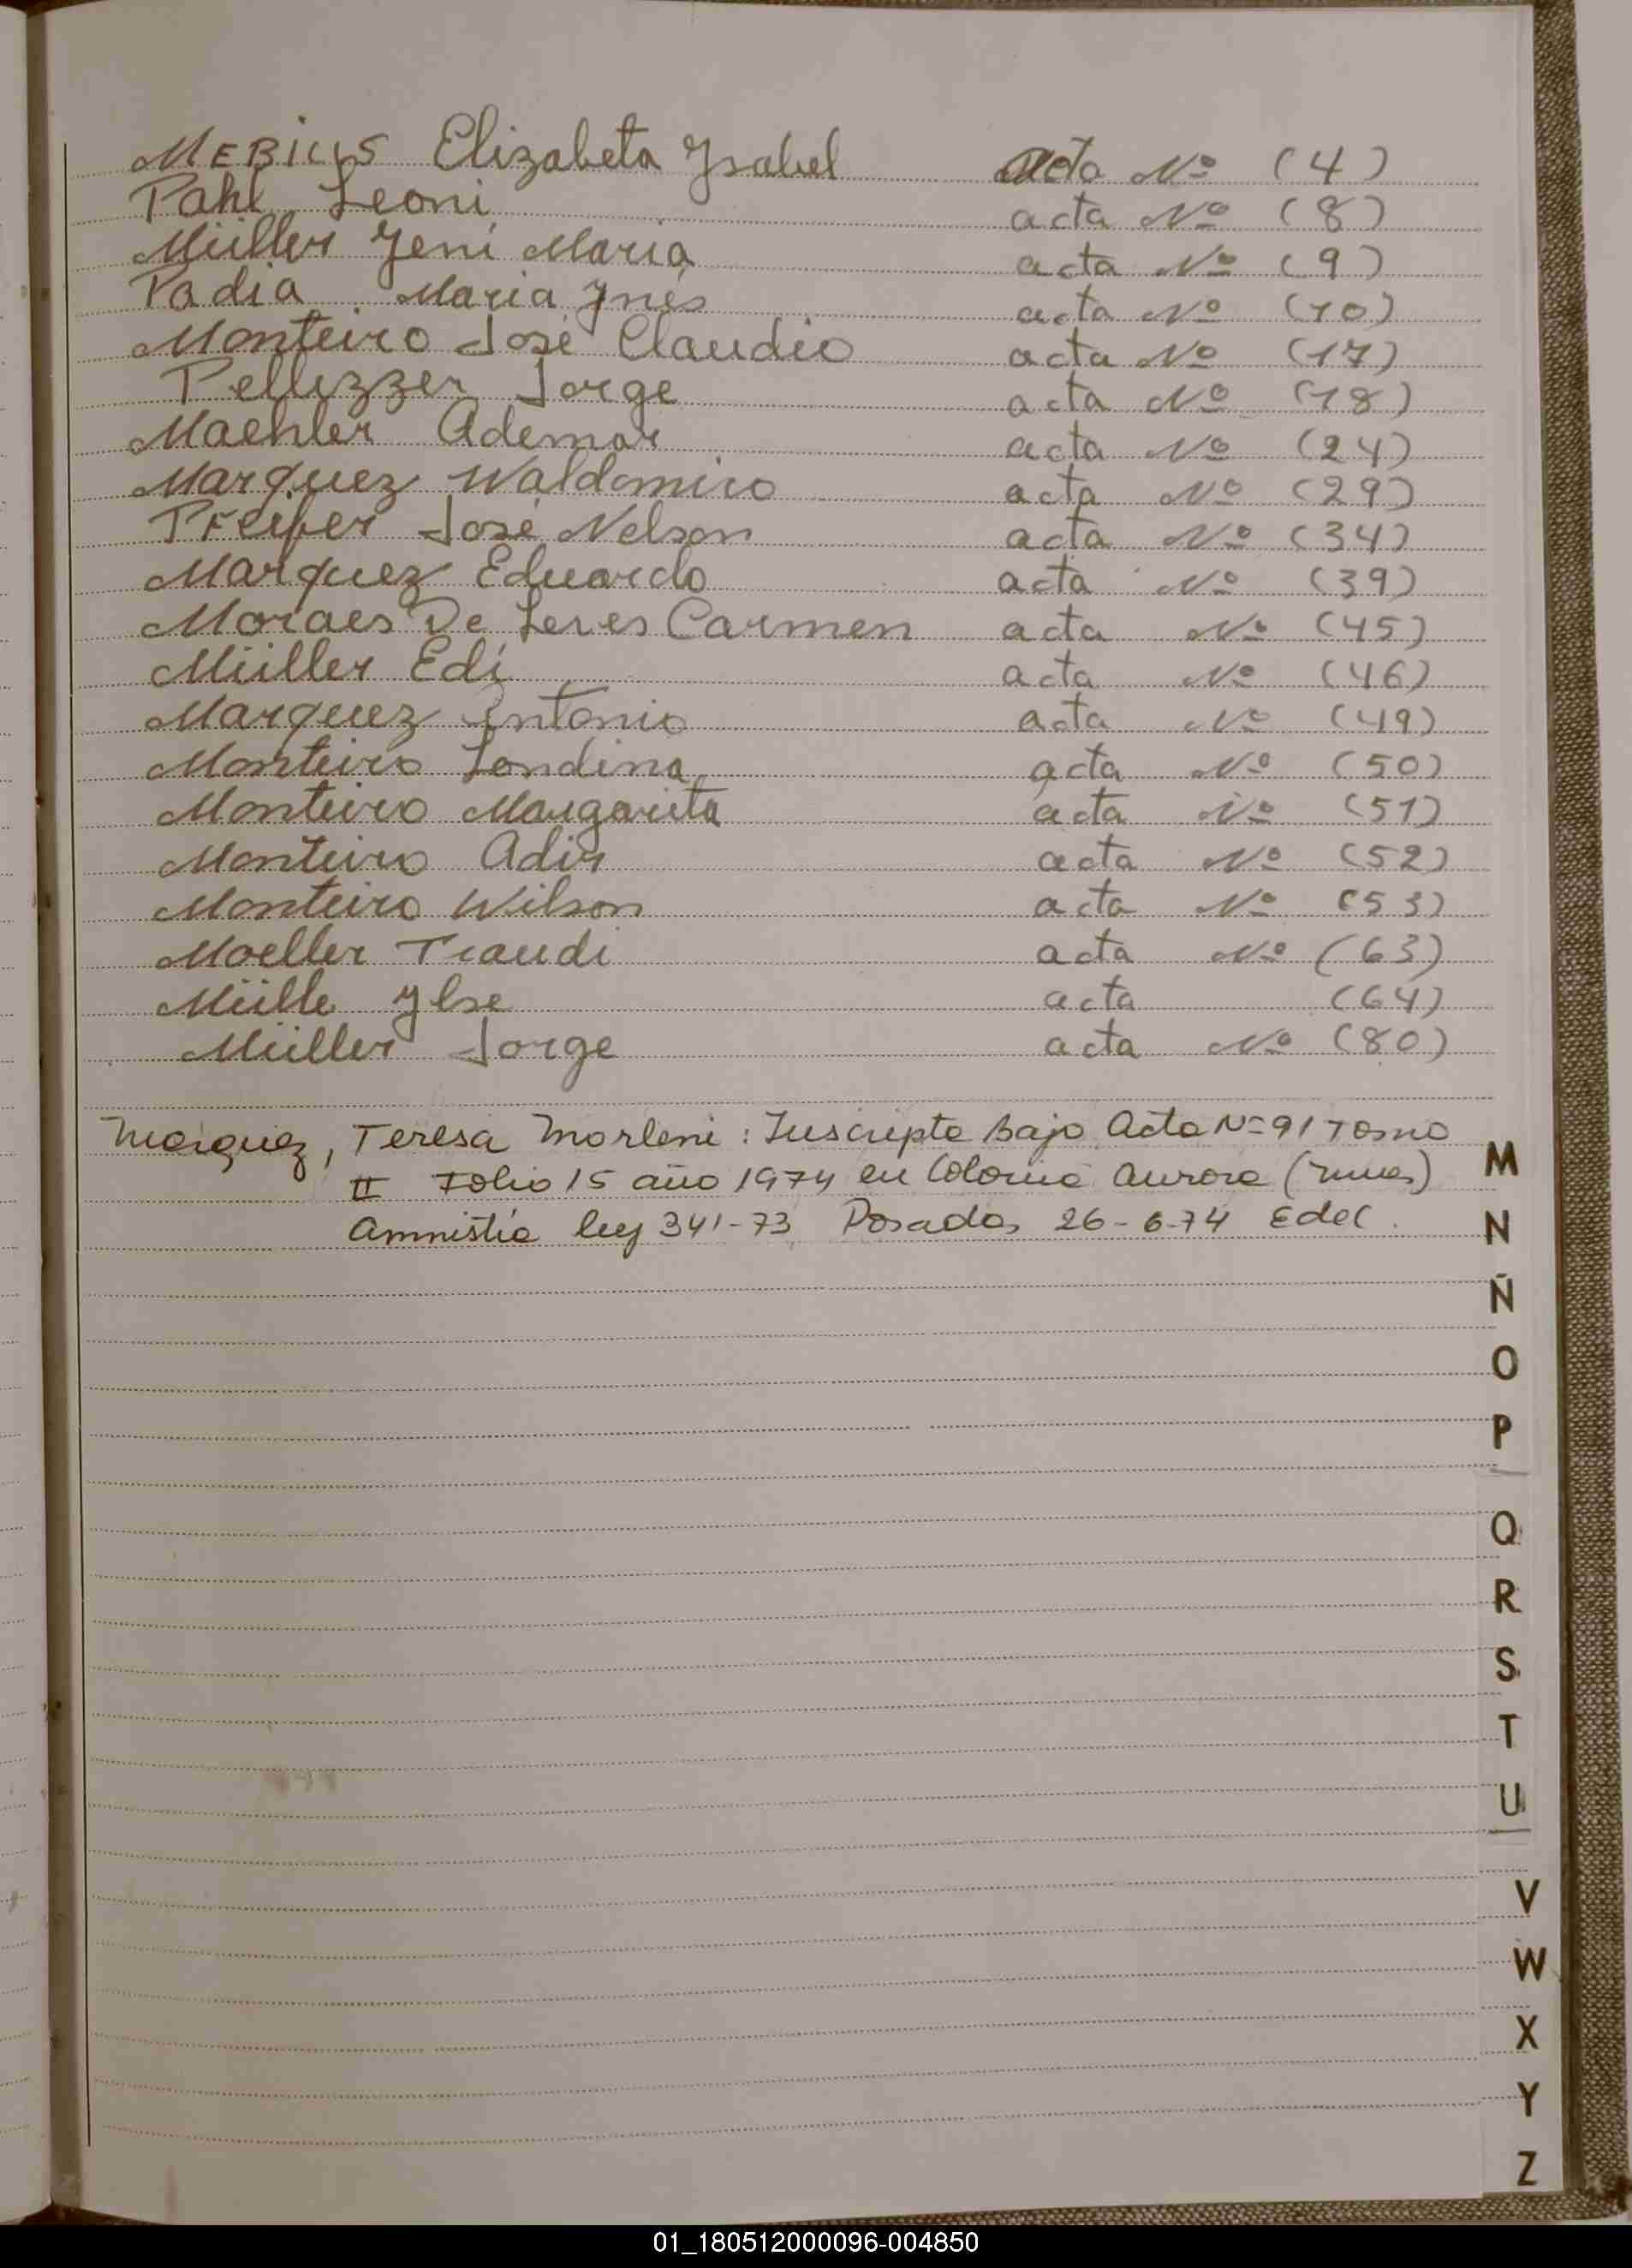 MEBIUS Elizabeta Ysabel acta Nº (4)
Pahl Leoni acta Nº (8)
Müller Yeni Maria acta Nº (9)
Padia Maria Ynés acta Nº (10)
Monteiro José Claudio acta Nº (17)
Pellizzer Jorge acta Nº (18)
Maehler Ademar acta Nº (24)
Marquez Waldomiro acta Nº (29)
PFeifer José Nelson acta Nº (34)
Marquez Eduardo acta Nº (39)
Moraes De Carmen acta Nº (45)
Müller Edi acta Nº (46)
Marquez Antonio acta Nº (49)
Monteiro Londina acta Nº (50)
Monteiro Margarita acta Nº (51)
Monteiro Adir acta Nº (52)
Monteiro Wilson acta Nº (53)
Moeller Traudi acta Nº (63)
Mülle Ylse acta (64)
Müller Jorge acta Nº (80)
Marquez, Teresa Marleni: Inscripta Bajo Acta Nº 91 Tomo
II Folio 15 año 1974 en Colonia Aurora (Mnes)
Amnistía ley 341-73 Posadas 26-6-74
M
N
Ñ
O
P
Q
R
S
T
U
V
W
X
Y
Z
01_180512000096-004850